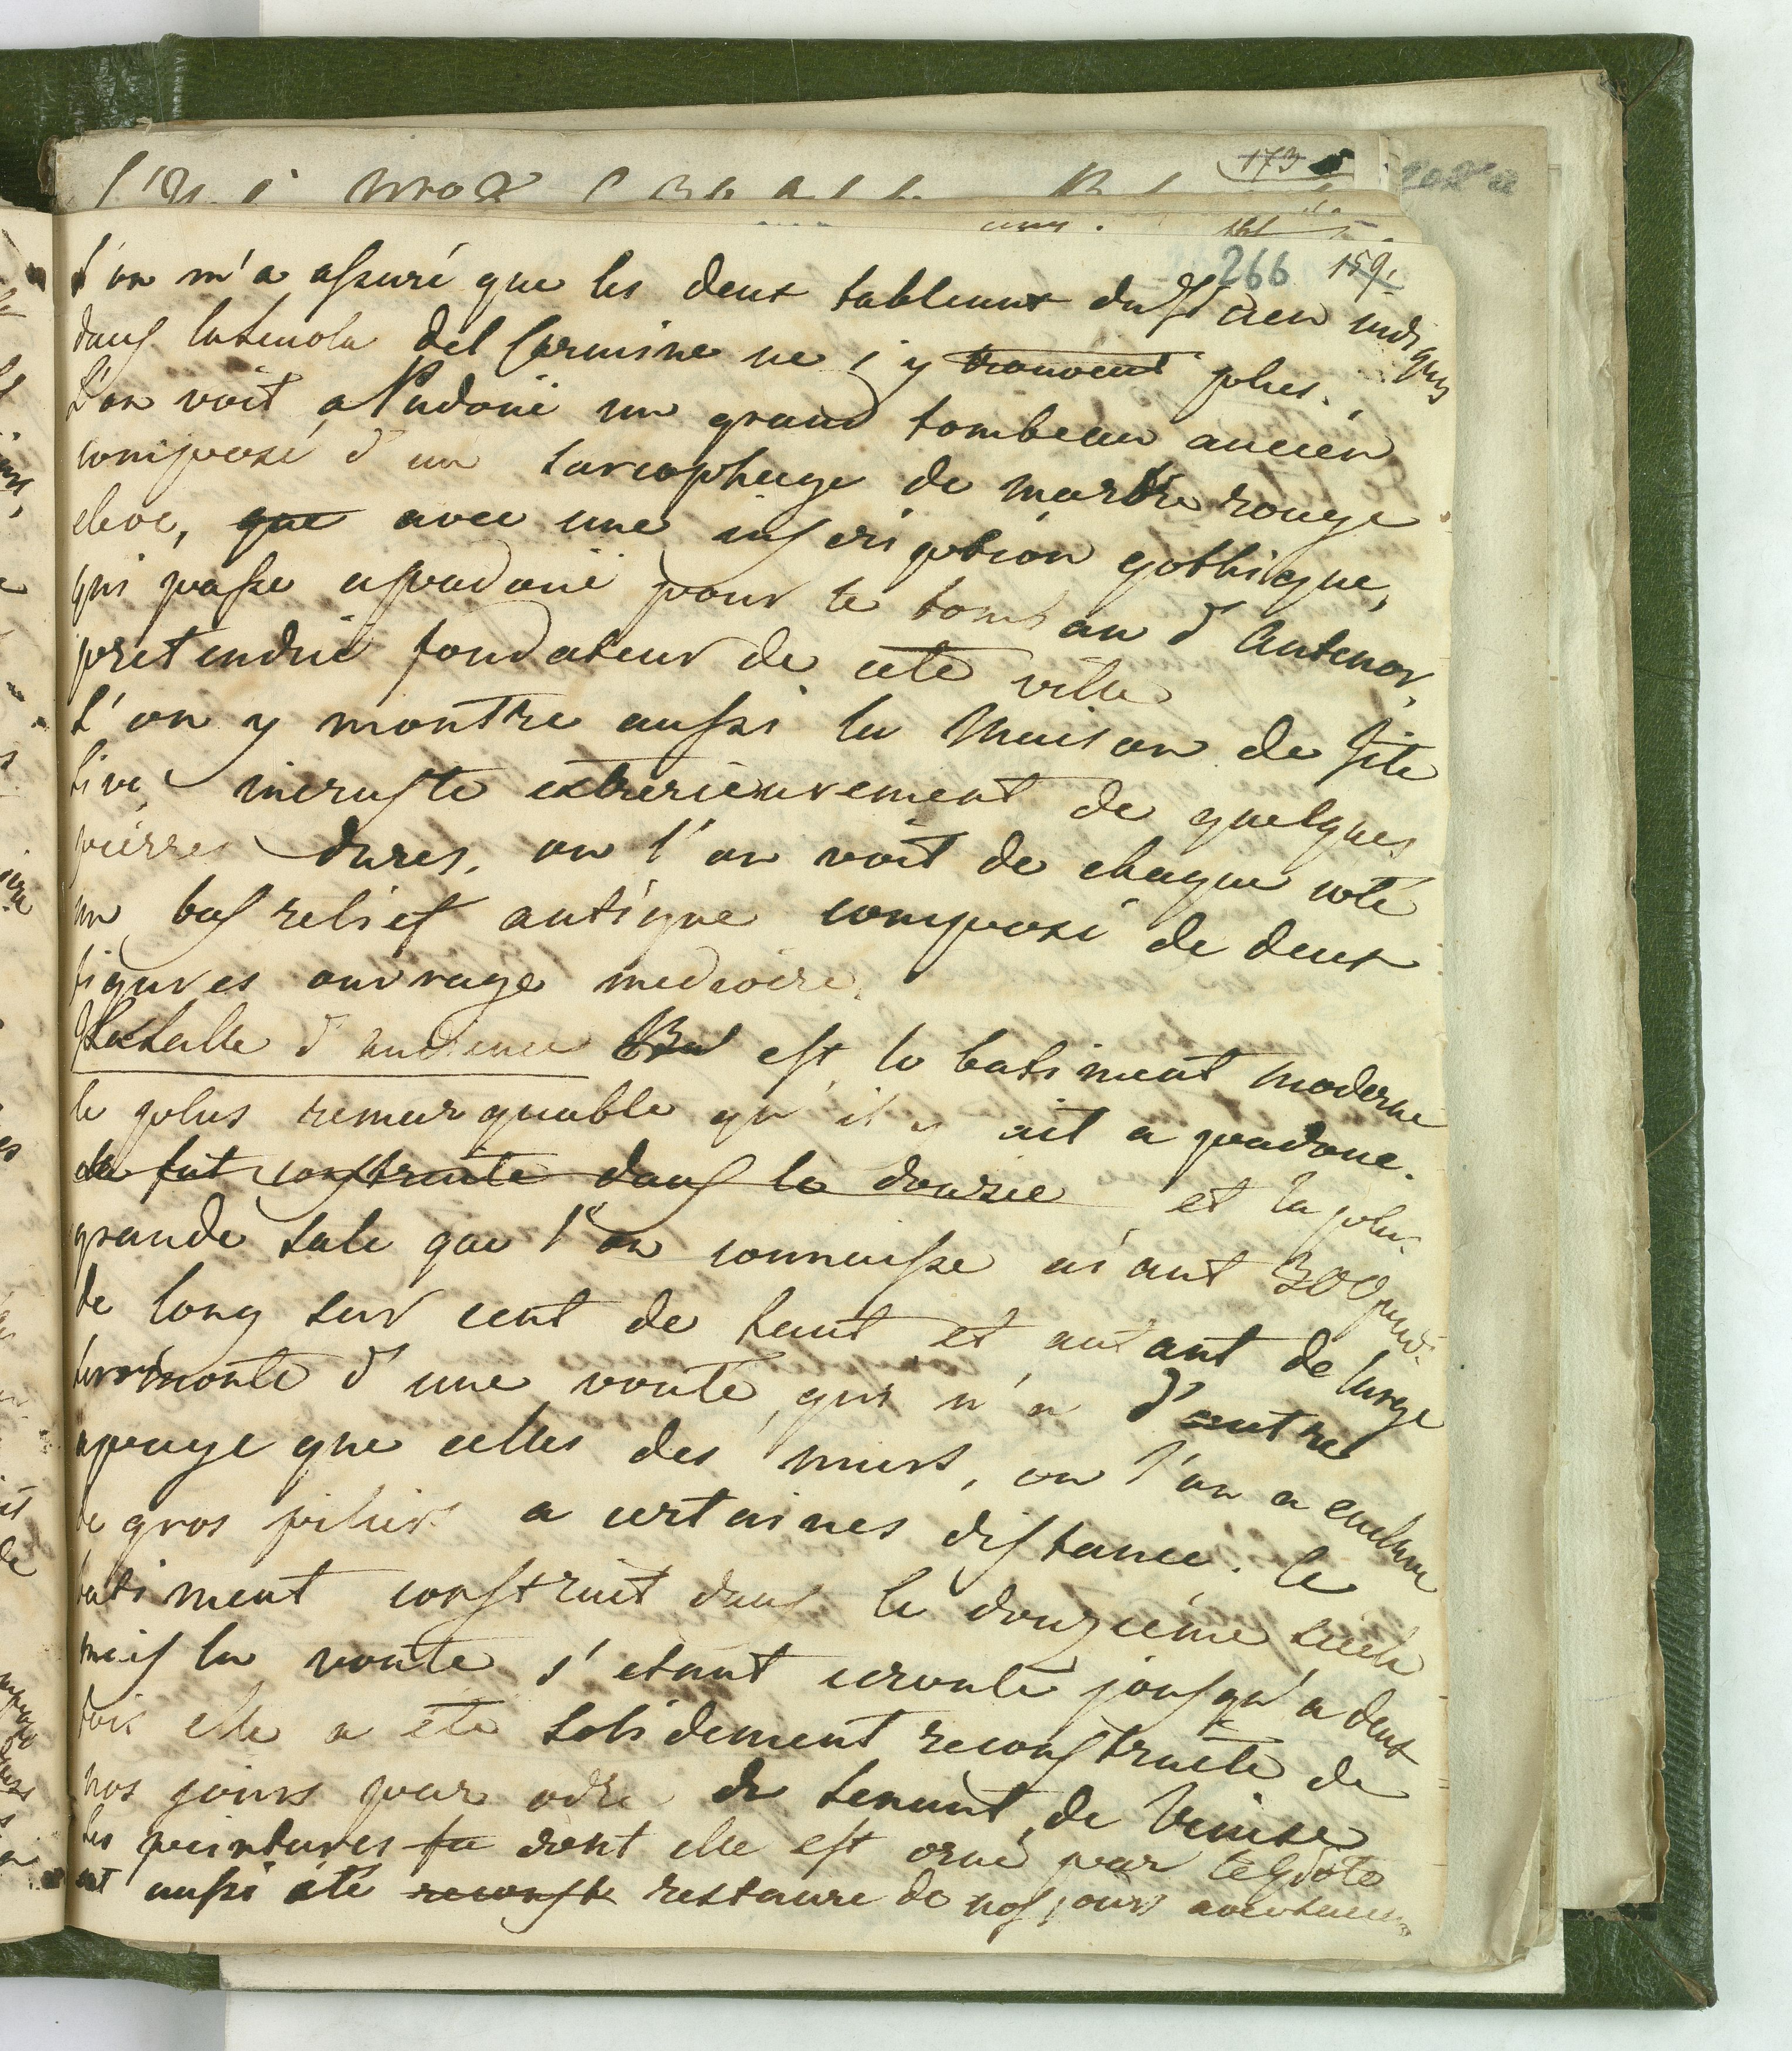 266 159.
L'on m'a assuré que les deux tableaux du Titien indiqués
dans la scuola del Carmine ne s'y trouvent plus.
L'on voit a Padoüe un grand tombeau ancien
composé d'un sarcophage de marbre rouge
elevé, que avec une inscription gothique,
qui passe a padoüe pour le tombeau d'Antenor,
pretendue fondateur de cete ville
L'on y montre aussi la Maison de Tite
Live, incruste exterieurement de quelques
pierres dures, ou l'on voit de chaque coté
un bas relief antique composé de deux
figures ouvrage mediocre.
La salle d'audience est le batiment moderne
le plus remarquable qu'il y ait a padoue.
elle fut construite dans le douzie et la plus
grande sale que l'on connaisse aiant 300 pieds
de long sur cent de haut et autant de large
surmonté d'une voute, qui n'a d'autre
apuye que celles des murs, ou l'on a
de gros piliers a certaines distance. le
batiment construit dans le douzieme siecle
mais la voute s'etant ecroulé jousqu'a deux
fois elle a été solidement reconstruite de
nos jours par ordre du senant de Venise
les peintures fu dont elle est orné par le Gioto
ont aussi été reconst restaure de nos jours